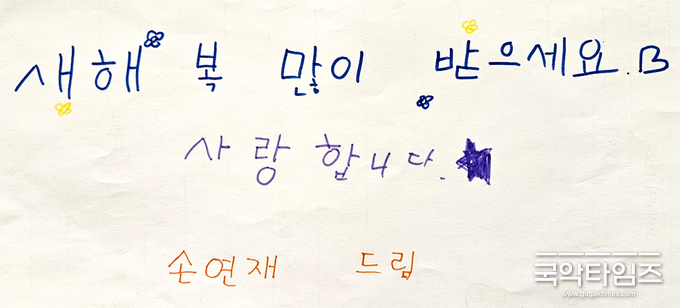 새해 복 많이 받으세요.B
사랑합니다.
손연재 드림
국악타임즈
www.gugaktimes.com